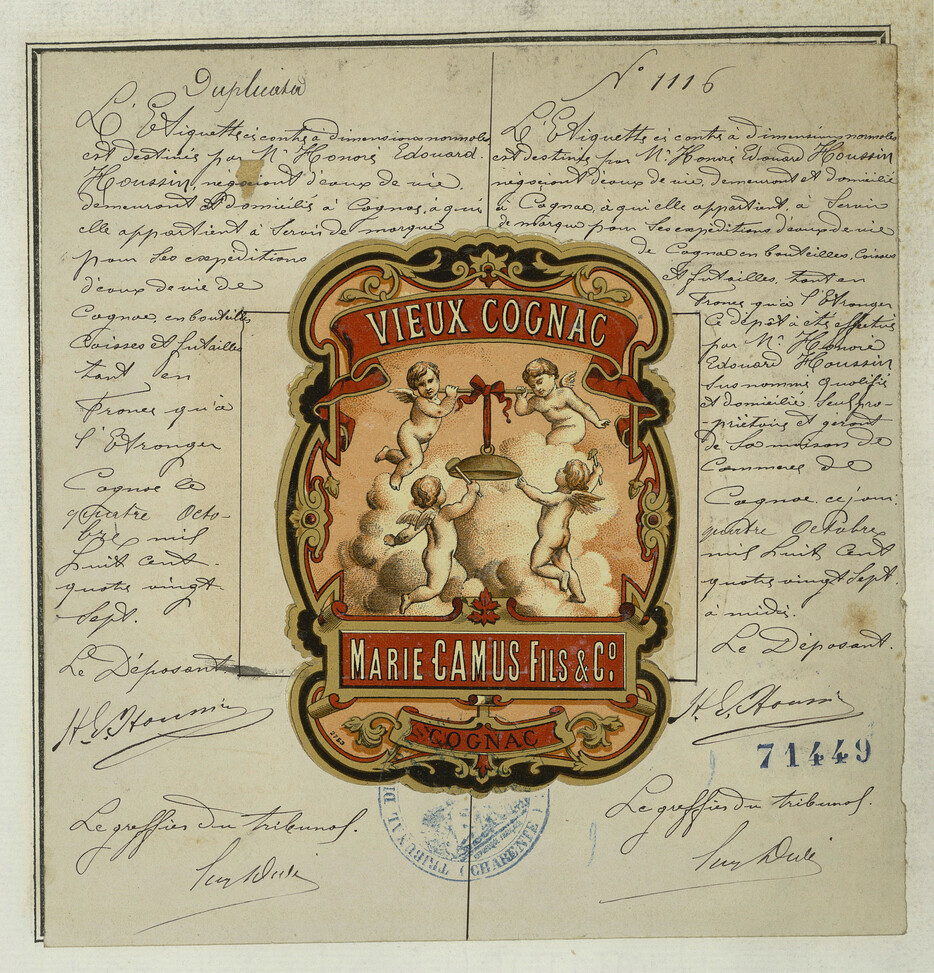 Duplicata
L'Etiquette ci contre à dimensions normales
est destinée par Mr Honoré Edouard
Houssin, négociant d'eaux de vie,
demeurant et domicilié à Cognac, à qui
elle appartient à servir de marque
pour ses expéditions
d'eaux de vie de
Cognac, en bouteilles
Caisses et futailles
tant en
France qu'à
l'Etranger
Cognac le
quatre octo-
bre mil
huit cent
quatre vingt
sept.
Le Déposant
H. E. Houssin
Le greffier du tribunal.
N° 1116
L'Etiquette ci contre à dimensions normales
est destinée par Mr Honoré Edouard Houssin
négociant d'eaux de vie, demeurant et domicilié
à Cognac, à qui elle appartient, à servir
de marque pour ses expéditions d'eaux de vie
de Cognac en bouteilles, Caisses
et futailles, tant en
France qu'à l'Etranger
Ce dépôt a été effectué
par Mr Honoré
Edouard Houssin
susnommé qualifié
et domicilié seul pro-
-priétaire et gérant
de la maison de
Commerce de
Cognac, ce jour
quatre Octobre
mil huit cent
quatre vingt sept.
à midi.
Le Déposant.
H. E. Houssin
71449
Le greffier du tribunal.
VIEUX COGNAC
MARIE CAMUS FILS & Co.
COGNAC
TRIBUNAL D
(CHARENTE)